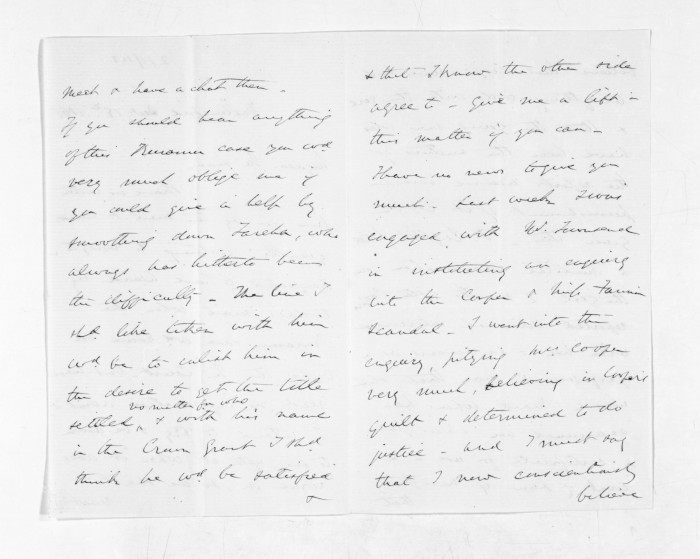 meet & have a chat then -
If you should hear anything
of this case you cod
very much oblige me if
you could give a help by
smoothing down Tareha, who
always has hitherto been
the difficulty - The line I
shd like taken with him
wd be to enlist him in
the desire to get the title
settled, no matter for who
& with his name
in the Crown Grant I shd
think he wd be satisfied
&
& that I know the other side
agree to - Give me a lift in
this matter if you can -
I have no news to give you
much. Last week I was
engaged with Townsend
in instituting an enquiry
into the Cooper & Miss
scandal - I went into the
enquiry, pitying Mrs Cooper
very much, believing in Cooper's
guilt & determined to do
justice - and I must say
that I now conscientiously
believe